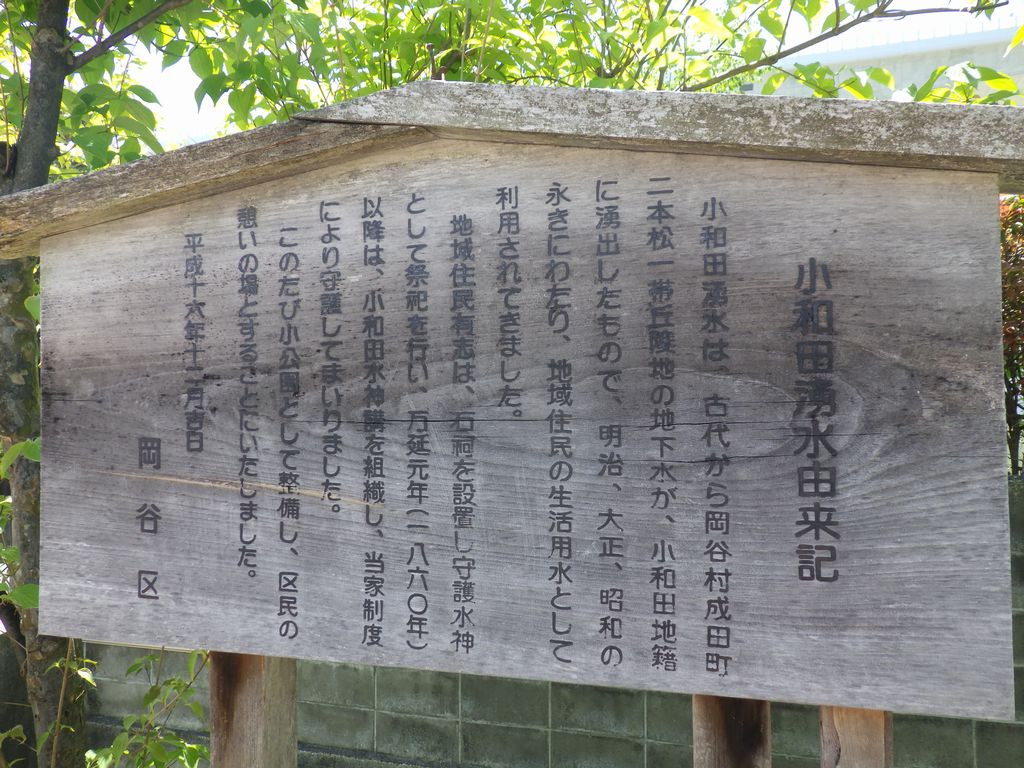 小和田湧水由来記
小和田湧水は、古代から岡谷村成田町
二本松一帯丘陵地の地下水が、小和田地籍
に湧出したもので、明治、大正、昭和の
永きにわたり、地域住民の生活用水として
利用されてきました。
地域住民有志は、石祠を設置し守護水神
として祭祀を行い、万延元年(一八六〇年)
以降は、小和田水神講を組織し、当家制度
により守護してまいりました。
このたび小公園として整備し、区民の
憩いの場とすることにいたしました。
平成十六年十二月吉日
岡谷区